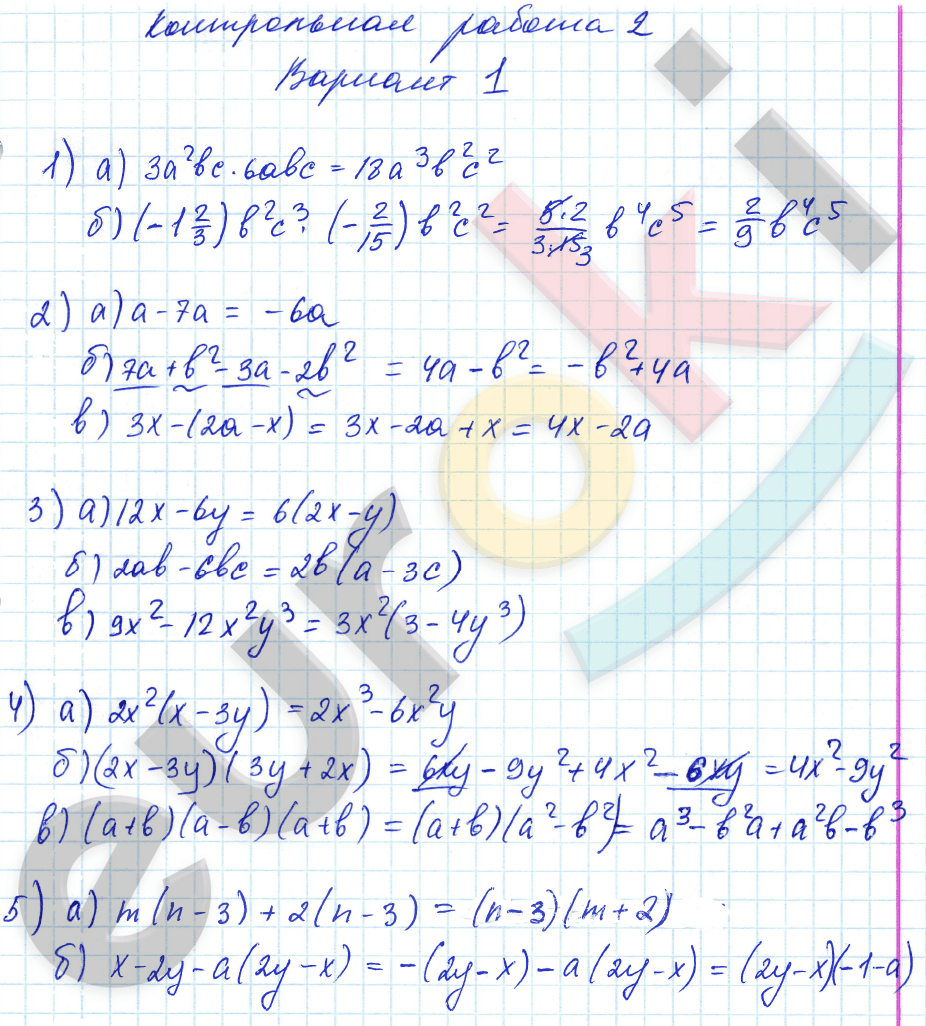 Контрольная работа 2
Вариант 1
1) а) 3a²bc · 6abc = 18a³b²c²
б) (-1 2/3) b²c³ · (-2/15) b²c² = 5·2/3·15 3 b⁴c⁵ = 2/9 b⁴c⁵
2) а) a - 7a = -6a
б) 7a + b² - 3a - 2b² = 4a - b² = -b² + 4a
в) 3x - (2a - x) = 3x - 2a + x = 4x - 2a
3) а) 12x - 6y = 6(2x - y)
б) 2ab - 6bc = 2b(a - 3c)
в) 9x² - 12x²y³ = 3x²(3 - 4y³)
4) а) 2x²(x - 3y) = 2x³ - 6x²y
б) (2x - 3y)(3y + 2x) = 6xy - 9y² + 4x² - 6xy = 4x² - 9y²
в) (a+b)(a-b)(a+b) = (a+b)(a² - b²) = a³ - b²a + a²b - b³
5) а) m(n - 3) + 2(n - 3) = (n - 3)(m + 2)
б) x - 2y - a(2y - x) = -(2y - x) - a(2y - x) = (2y - x)(-1 - a)
euroki